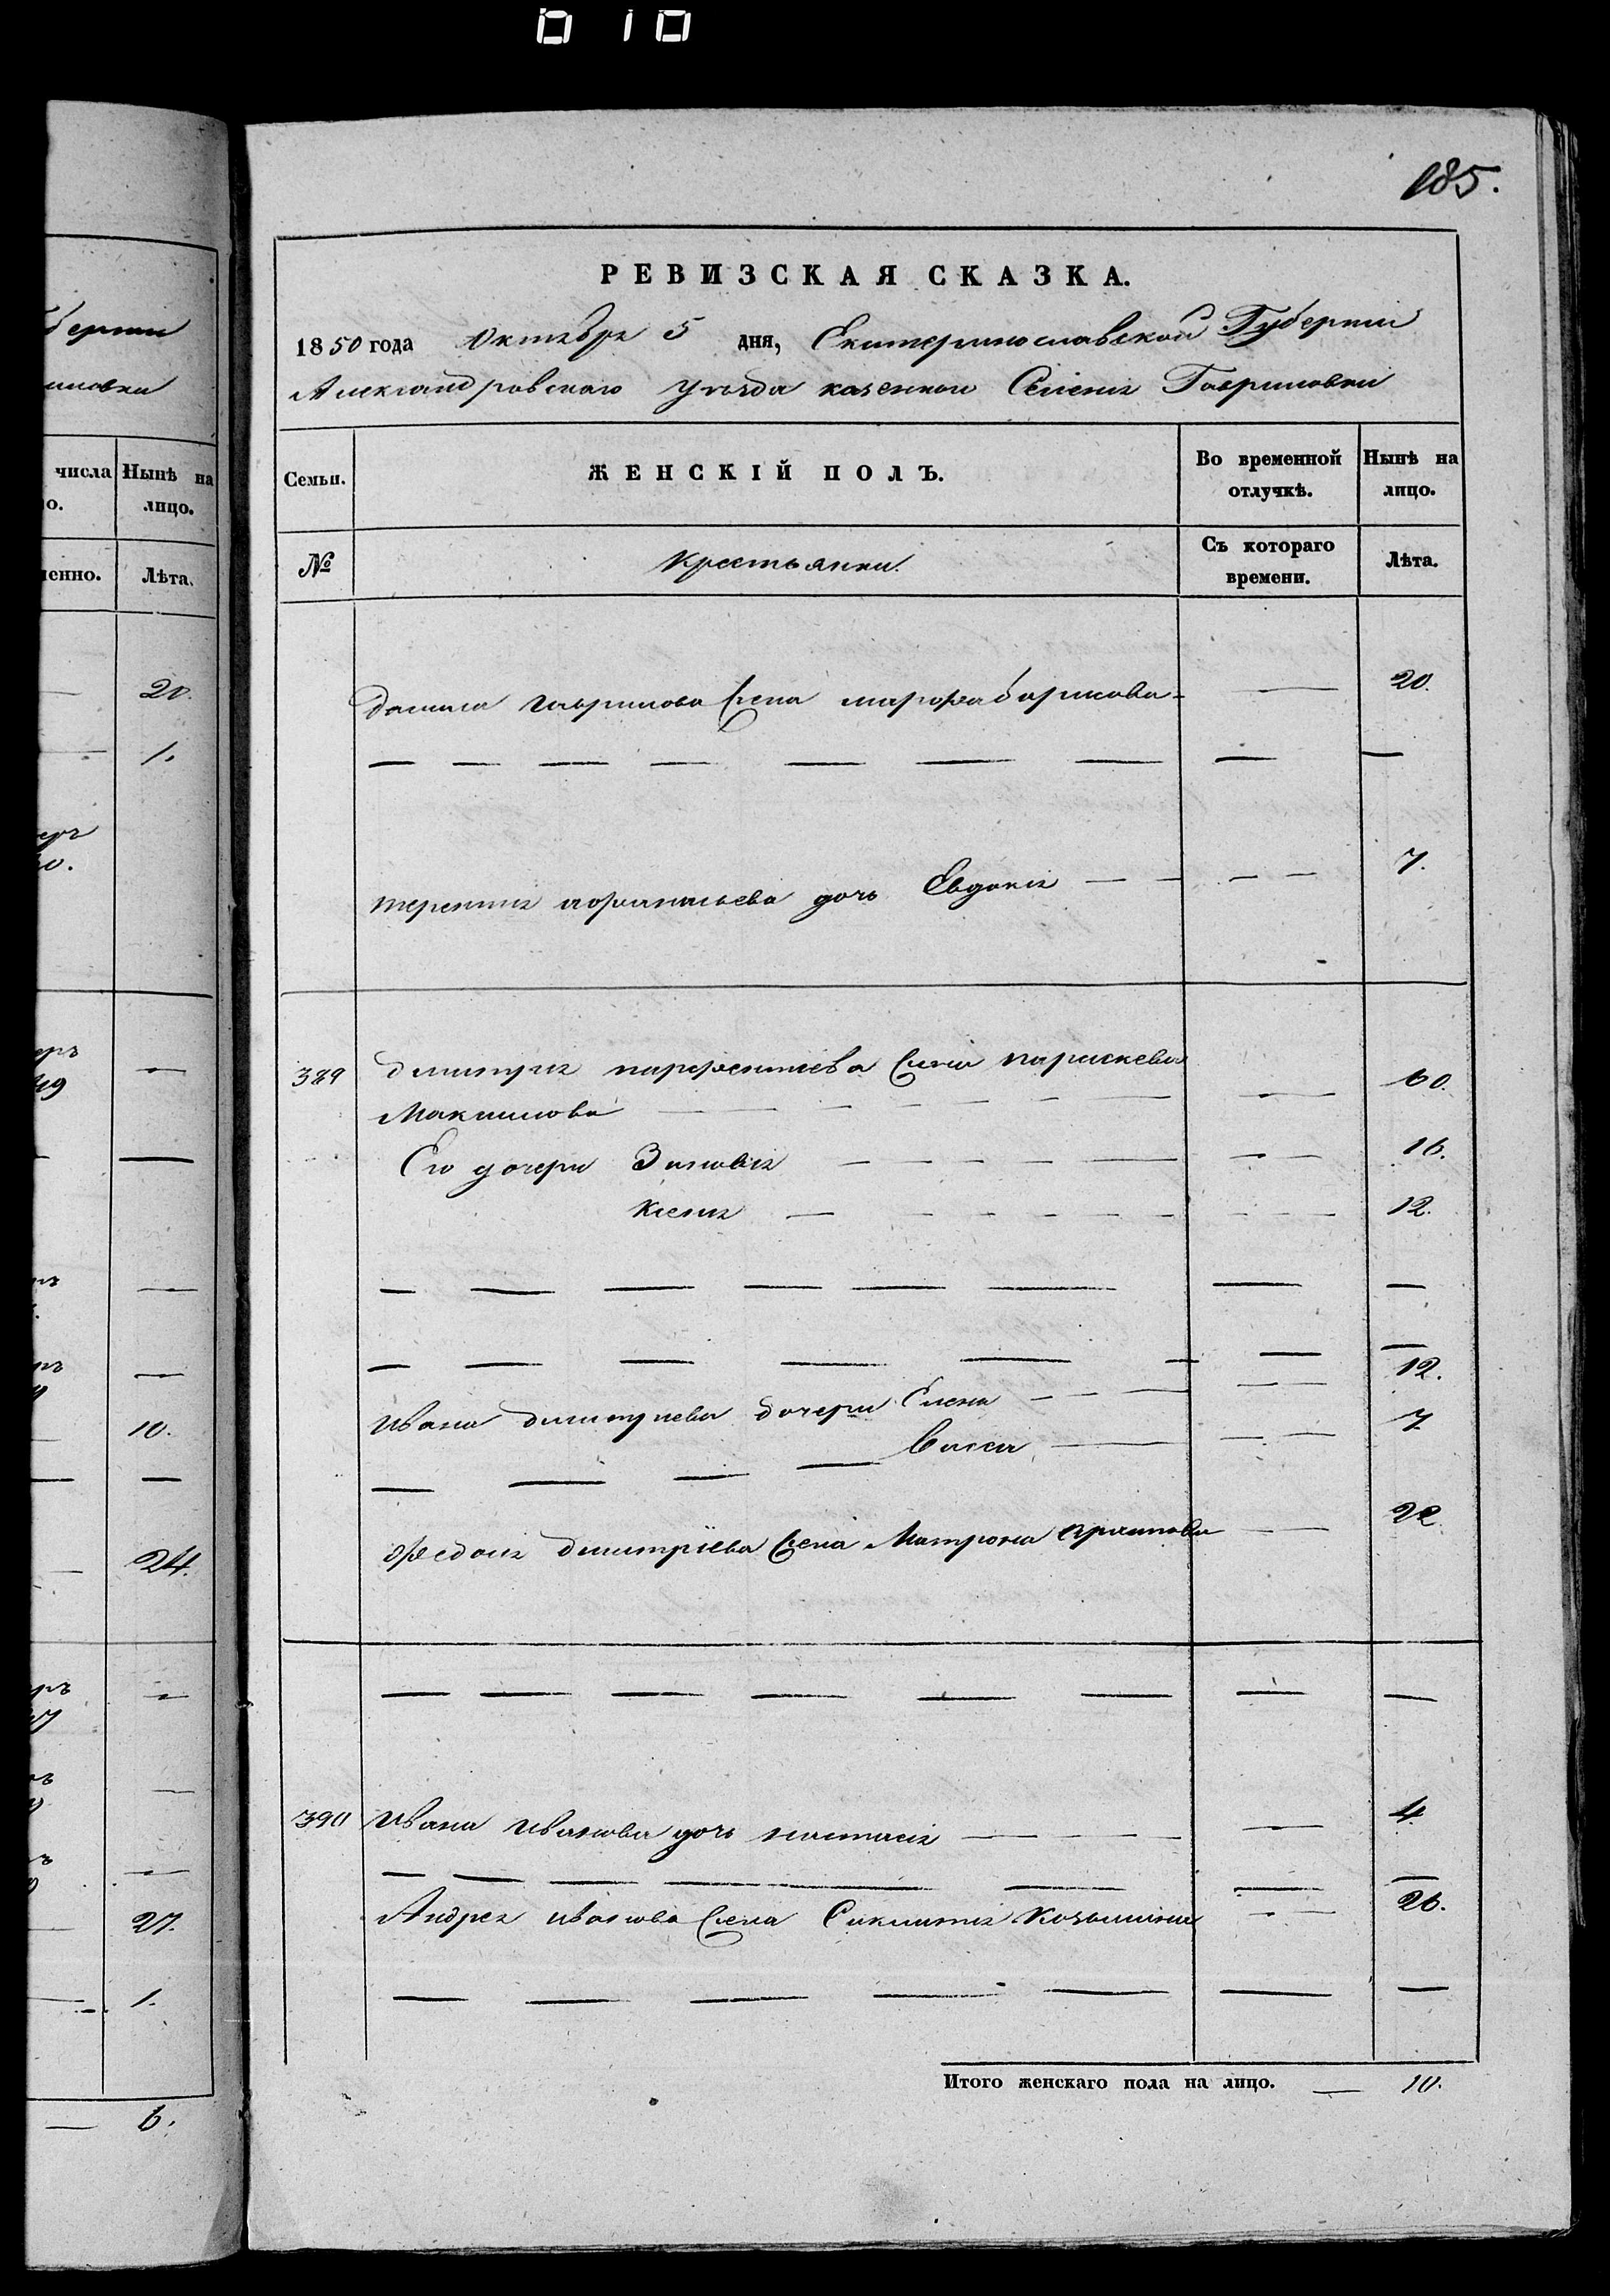 185.
РЕВИЗСКАЯ СКАЗКА.
1850 года Октября 5 дня, Екатеринославской Губернии
Александровскаго уѣзда казенной Селенія Гавриловки
Семьи.
ЖЕНСКІЙ ПОЛЪ.
Во временной отлучкѣ.
Нынѣ на лицо.
№
Крестьянки.
Съ котораго времени.
Лѣта.
Данила гаврилова жена марфа борисова — 20.
терентия афанасьева дочь Евдокия — 7.
389 димитрия парфентиева жена параскева — 60.
Максимова
Его дочери Зиновия — 16.
Ксения — 12.
Ивана димитриева дочери Елена — 12.
Васса — 7
федота димитріева жена Матрона — 22.
390 Ивана Иванова дочь настасия — 4.
Андрея иванова жена Козьмина — 26.
Итого женскаго пола на лицо. — 10.
берніи
иловки
числа
о.
Нынѣ на лицо.
ленно.
Лѣта.
20.
1.
10.
24.
27.
1.
6.